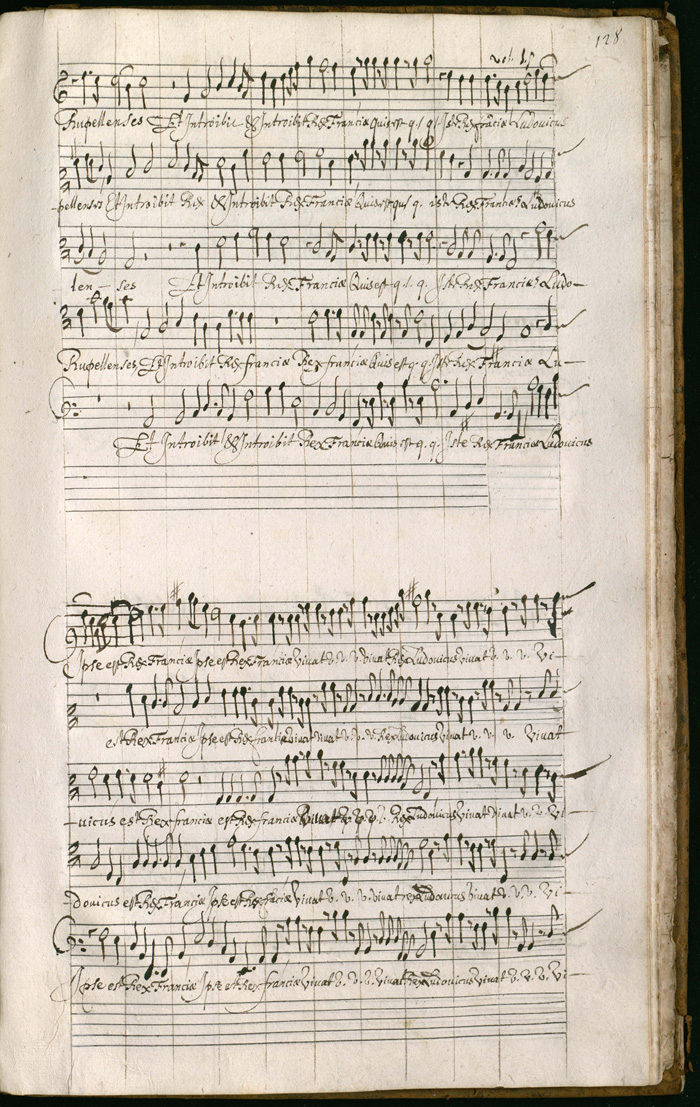 128
vol. 1.
Rupellenses Et Introibit & Introibit Rex Franciæ Quis est q. q. Iste Rex franciæ Ludovicus
pellenses Et Introibit Rex & Introibit Rex Franciæ Quis est quis q. iste Rex Franciæ Ludovicus
len - ses Et Introibit Rex Franciæ Quis est q. q. Iste Rex Franciæ Ludo-
Rupellenses Et Introibit Rex franciæ Rex franciæ Quis est q. q. Iste Rex Franciæ Lu-
Et Introibit & Introibit Rex Franciæ Quis est q. q. Iste Rex Franciæ Ludovicus
Ipse est Rex Franciæ Ipse est Rex Franciæ vivat v. v. v. vivat Rex Ludovicus vivat v. v. v. Vi-
est Rex Franciæ Ipse est Rex franciæ vivat vivat v. v. v. Rex Ludovicus vivat v. v. v. vivat
-uicus est Rex franciæ est Rex franciæ Vivat v. v. v. Rex Ludovicus vivat vivat v. v. Vi-
dovicus est Rex Franciæ Ipse est Rex franciæ vivat v. v. v. vivat rex Ludovicus vivat v. v. v. Vi-
Ipse est Rex Franciæ Ipse est Rex franciæ vivat v. v. v. vivat Rex Ludovicus vivat v. v. v. Vi-